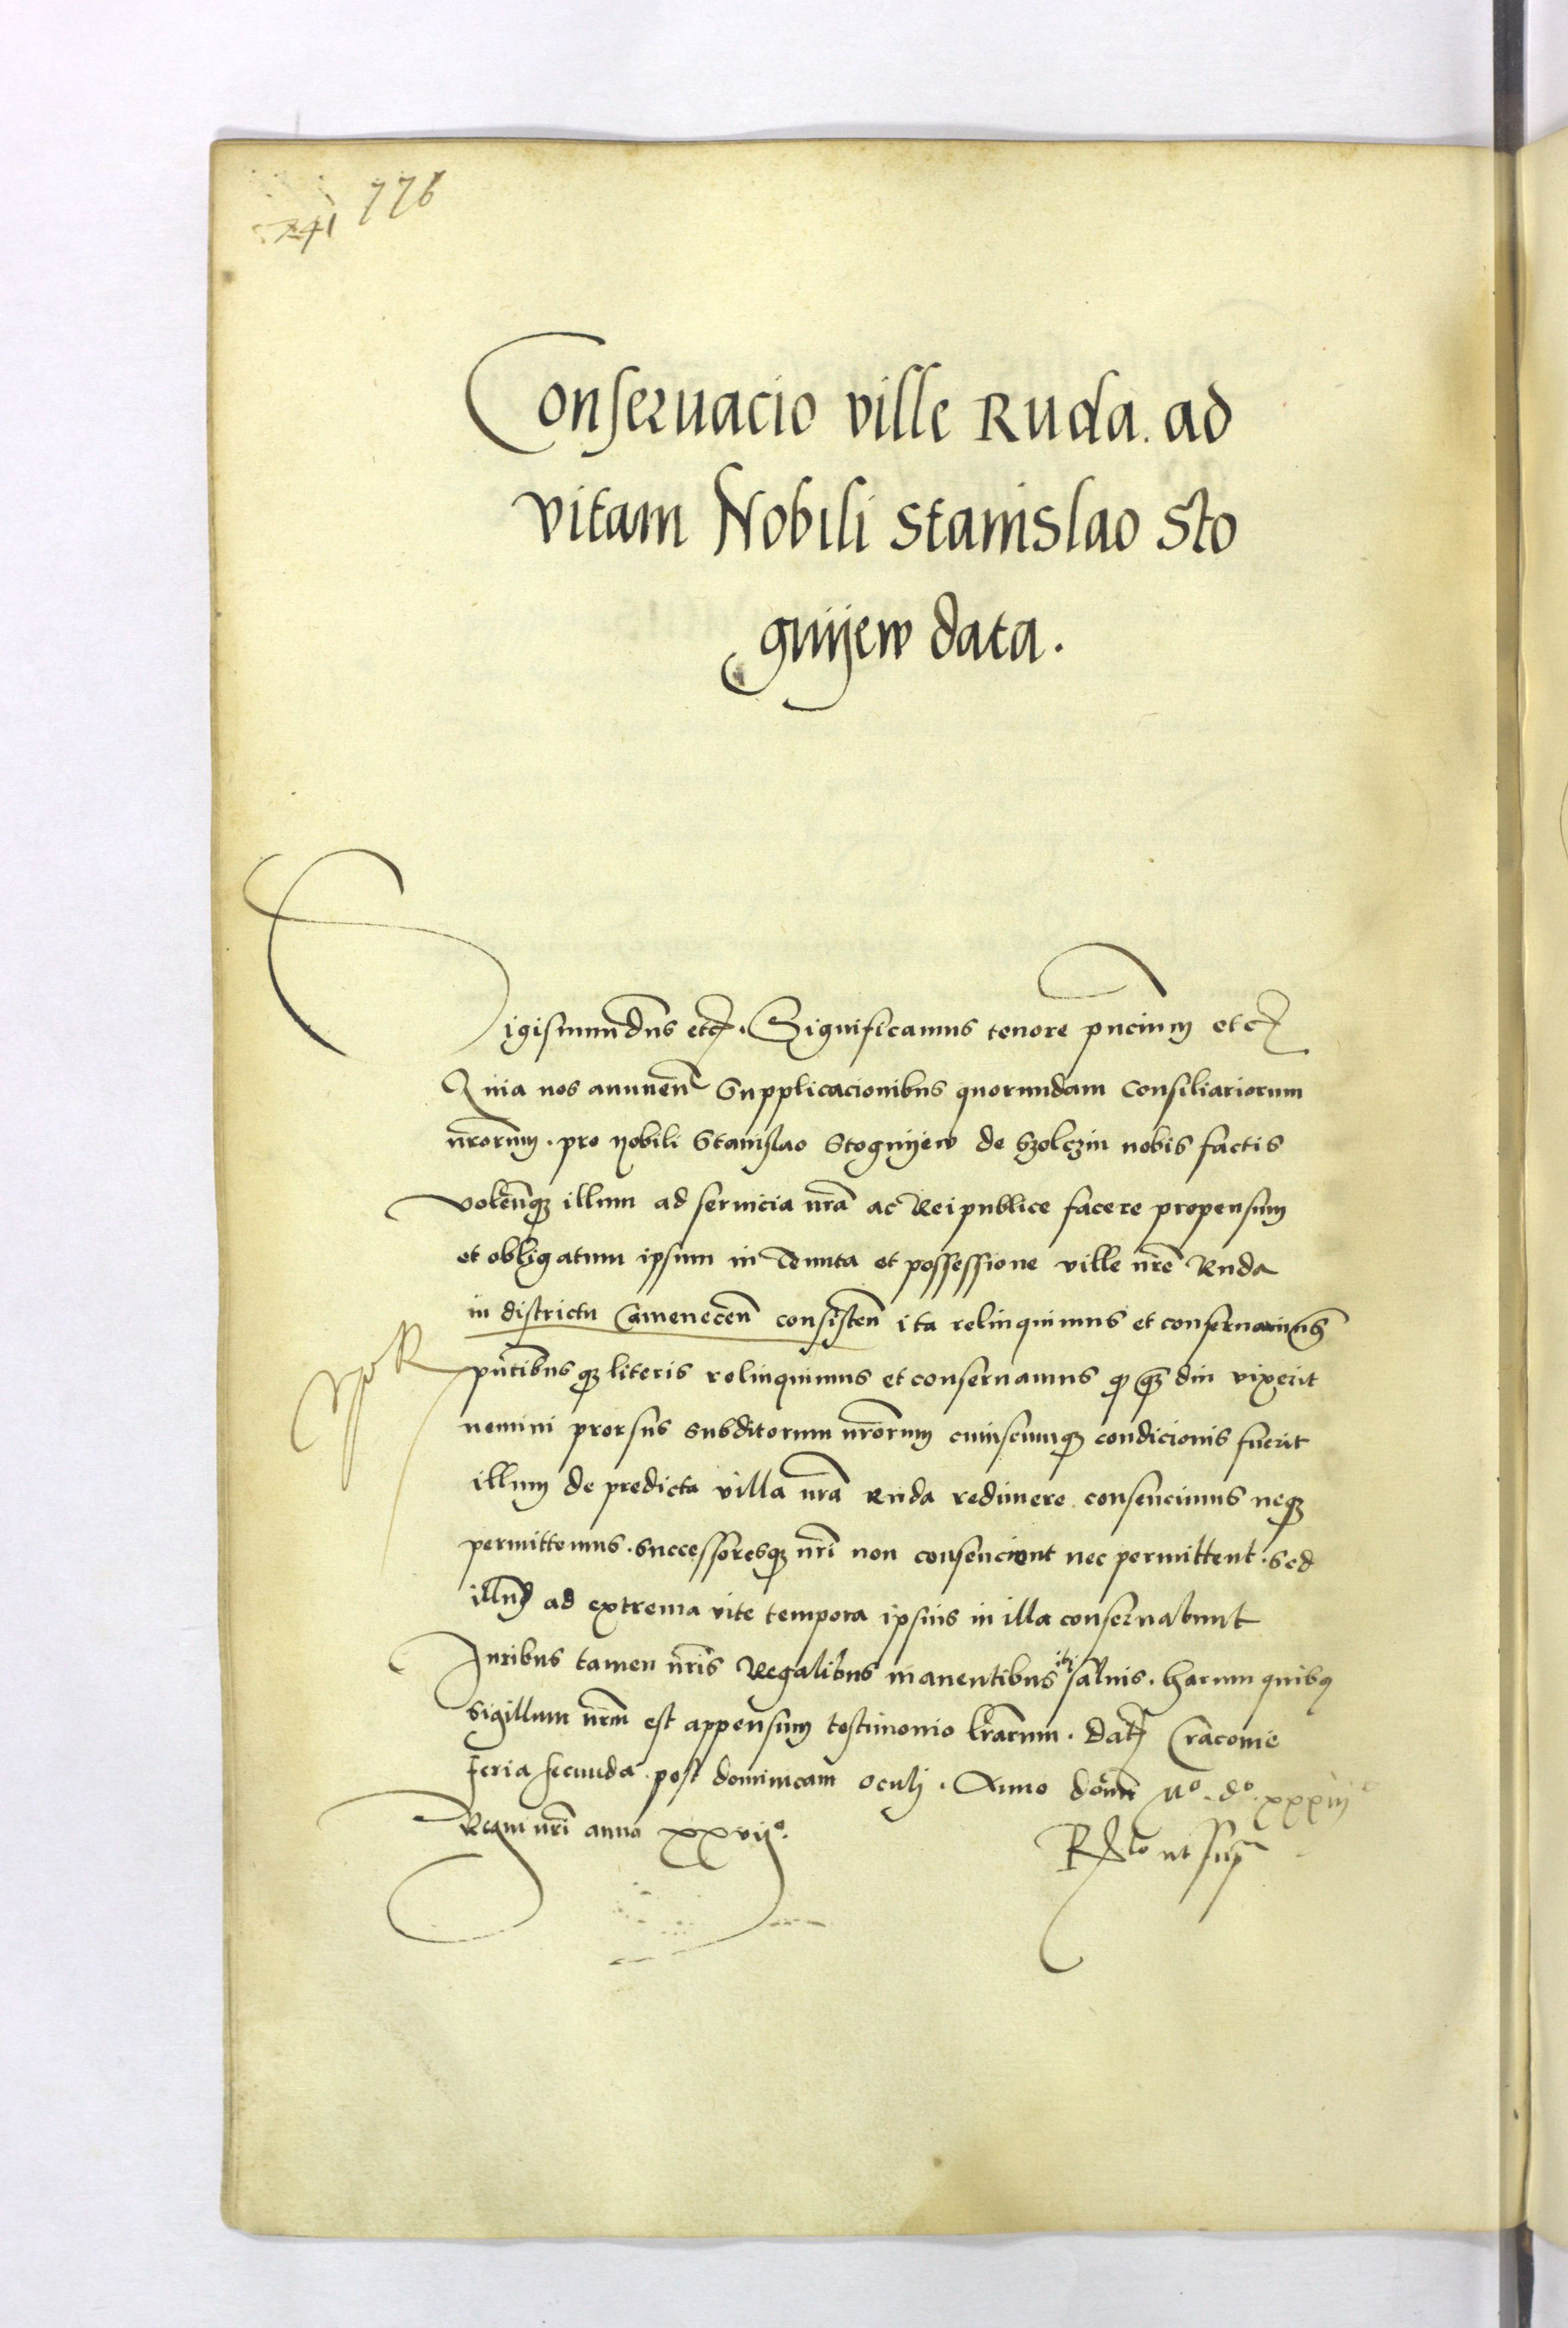 776
741
Conseruacio ville Ruda. ad
vitam Nobili Stanislao Sto
gnijew data.
Sigismundus etc. Significamus tenore pñcium etc
Quia nos annuen̄ Supplicacionibus quorundam Consiliariorum
nr̄orum. pro Nobili Stanislao Stognijew de Szolczin nobis factis
volen̄q illum ad seruicia nr̄a ac Reipublice facere propensum
et obligatum ipsum in Tenuta et possessione ville nr̄e Ruda
in districtu Camenecen̄ consisten̄ ita relinquimus et conseruauimus
pn̄tibus q literis relinquimus et conseruamus q q diu vixerit
nemini prorsus subditorum nr̄orum cuiuscumq condicionis fuerit
illum de predicta villa nr̄a Ruda redimere consencimus neq
permittemus. Successoresq nr̄i non consencient nec permittent. Sed
illum ad extrema vite tempora ipsius in illa conseruabunt
Iuribus tamen nr̄is Regalibus manentibus ibi saluis. harum quibus
sigillum nr̄m est appensum testimonio lr̄arum. Dat Cracouie
feria secunda post dominicam oculj. Anno domī Mº. dº. xxxiijº
Regni nr̄i anno xxvijº.
Rlo ut supͣ